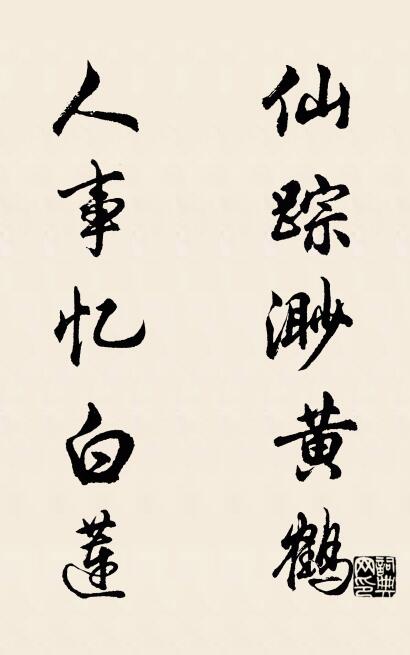 仙踪渺黄鹤
人事忆白莲
詞典网印